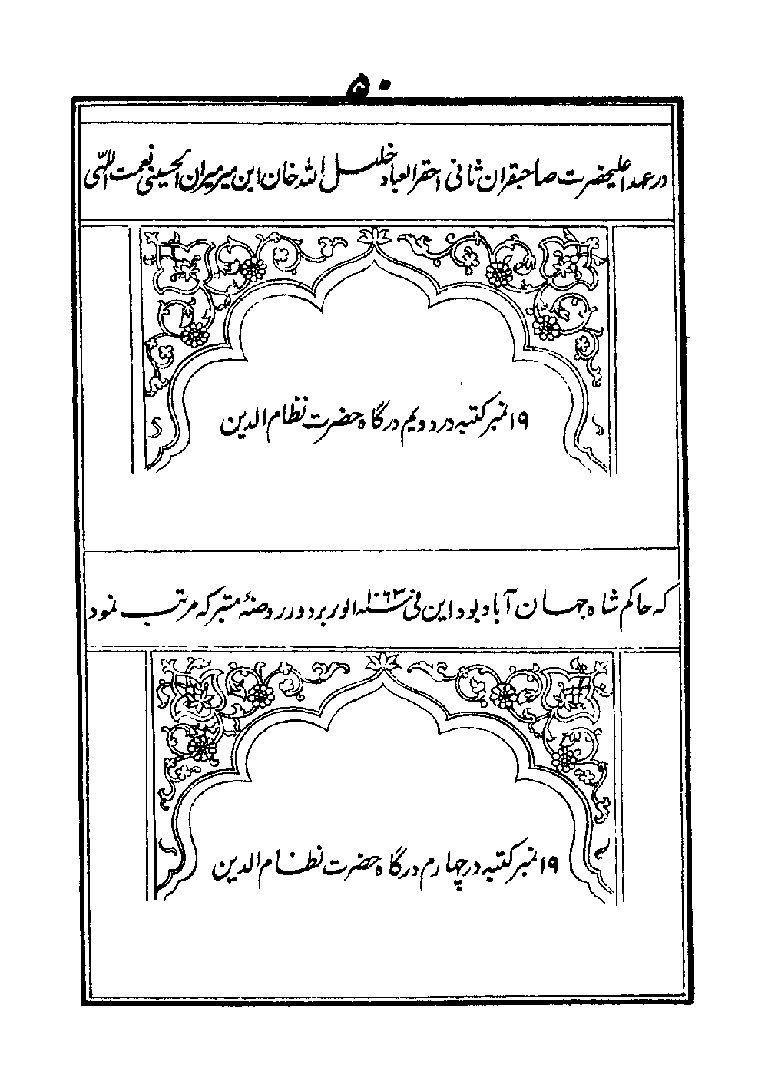 ۵۰
در عہد اعلیحضرت صاحبقران ثانی احقر العباد خلیل اللہ خان ابن میر میران الحسینی نعمت اللہی
۱۹ نمبر کتبہ در دویم درگاہ حضرت نظام الدین
کہ حاکم شاہ جہان آباد بود این فی ۱۰۶۳ در روضۂ متبرکہ مرتب نمود
۱۹ نمبر کتبہ در چہارم درگاہ حضرت نظام الدین